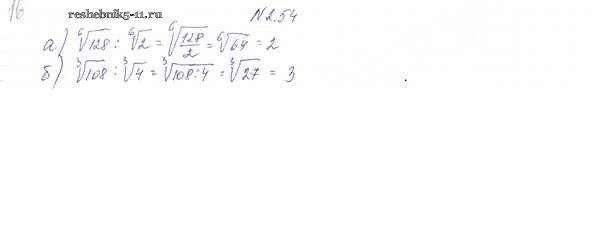 16
reshebnik5-11.ru
N 2.54
а) ⁶√128 : ⁶√2 = ⁶√(128/2) = ⁶√64 = 2
б) ³√108 : ³√4 = ³√(108:4) = ³√27 = 3